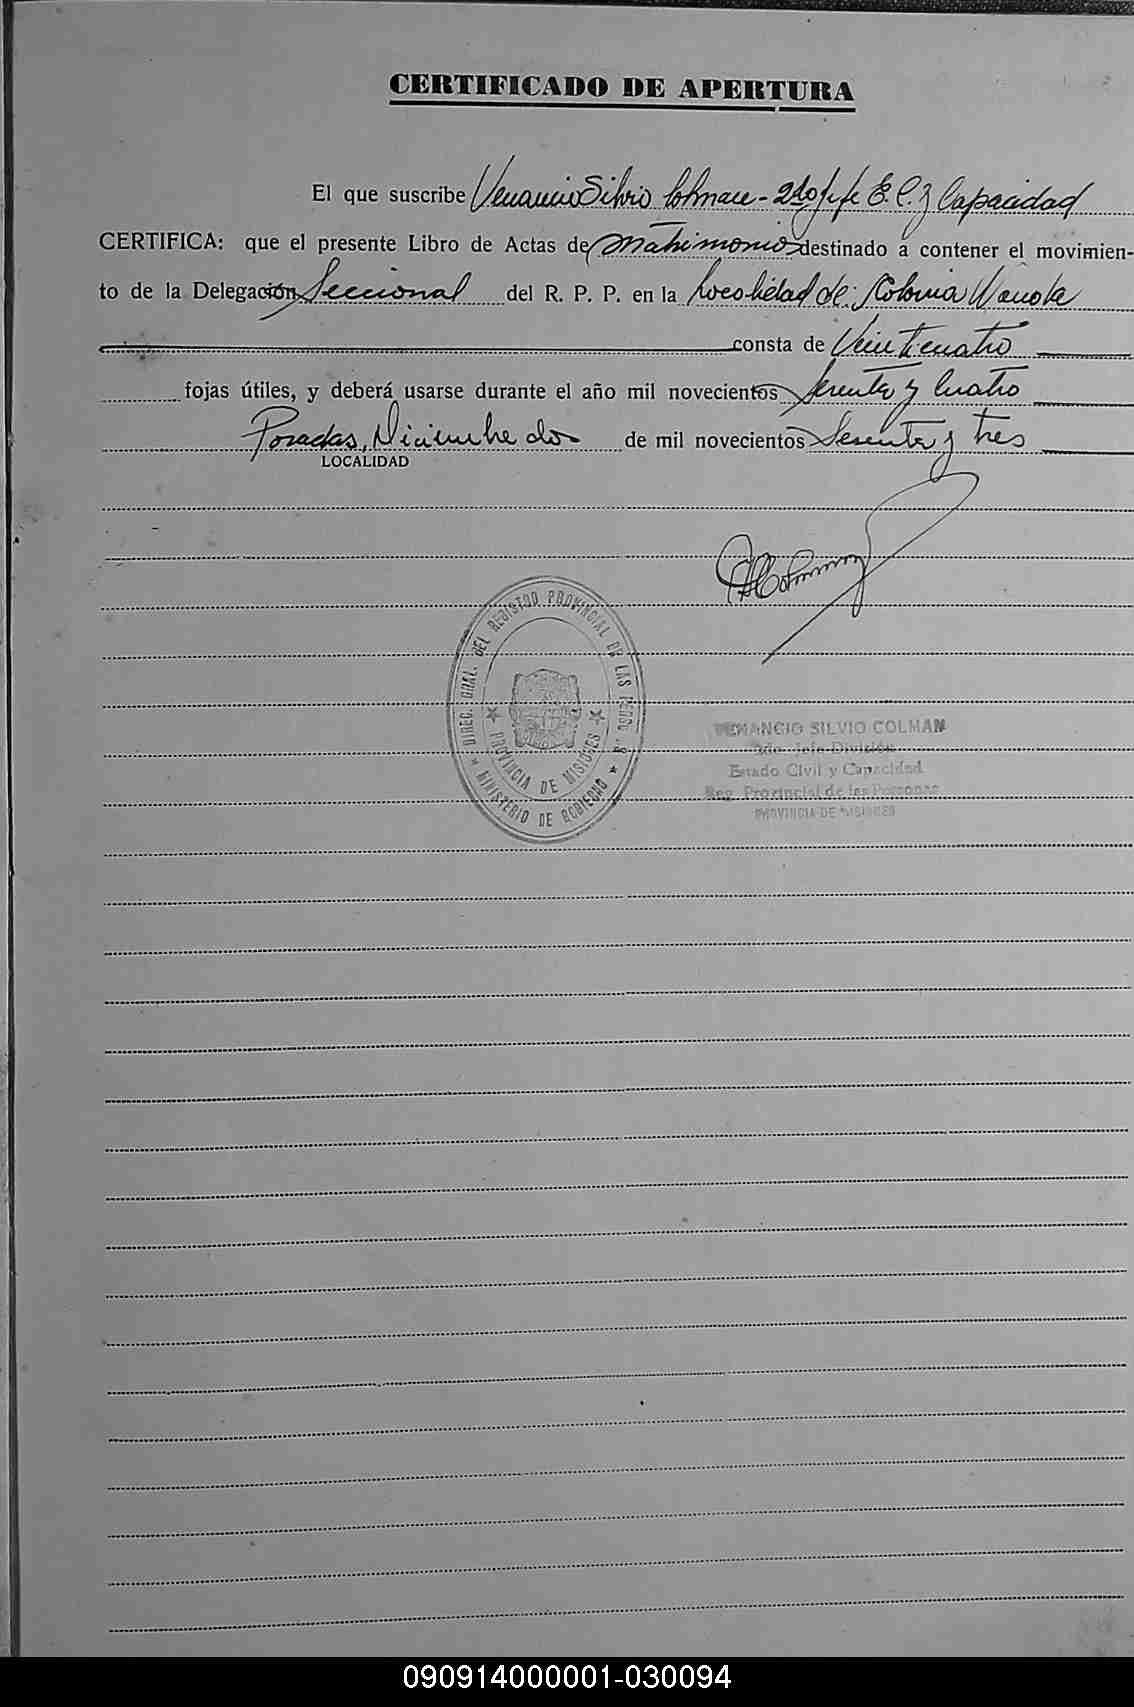 CERTIFICADO DE APERTURA
El que suscribe Venancio Silvio Colman - 2do Jefe E. C. y Capacidad
CERTIFICA: que el presente Libro de Actas de Matrimonio destinado a contener el movimien-
to de la Delegación Seccional del R. P. P. en la Localidad de: Colonia Wanda
consta de Veinticuatro
fojas útiles, y deberá usarse durante el año mil novecientos Sesenta y Cuatro
Posadas, Diciembre dos de mil novecientos Sesenta y tres
LOCALIDAD
DIREC. GRAL. DEL REGISTRO PROVINCIAL DE LAS PERS.
PROVINCIA DE MISIONES
MINISTERIO DE GOBIERNO
VENANCIO SILVIO COLMAN
2do. Jefe División
Estado Civil y Capacidad
Reg. Provincial de las Personas
PROVINCIA DE MISIONES
090914000001-030094